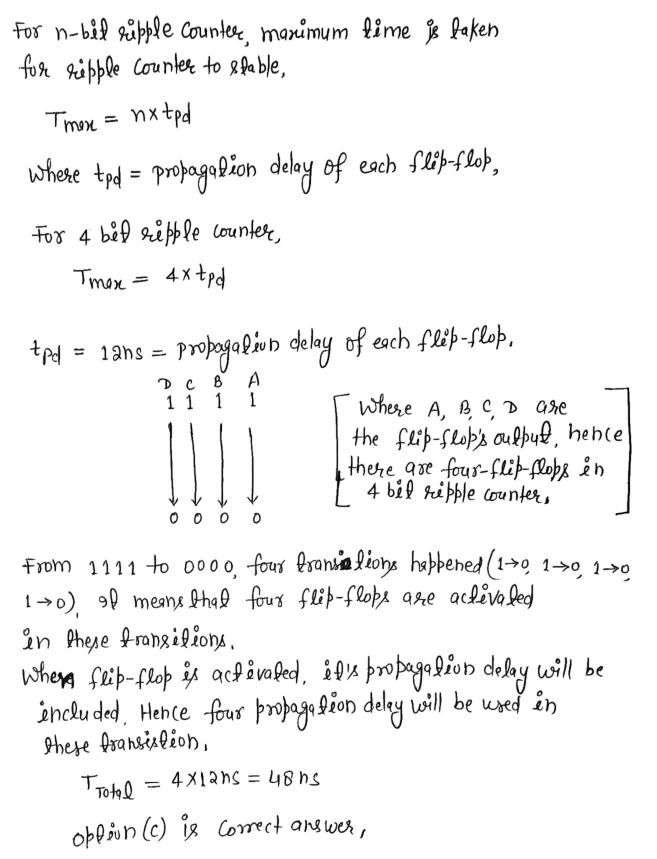 For n-bit ripple counter, maximum time is taken
for ripple counter to stable,
Tmax = n×tpd
Where tpd = propagation delay of each flip-flop,
For 4 bit ripple counter,
Tmax = 4×tpd
tpd = 12ns = propagation delay of each flip-flop.
D C B A
1 1 1 1
0 0 0 0
Where A, B, C, D are
the flip-flop's output, hence
there are four-flip-flops in
4 bit ripple counter.
From 1111 to 0000, four transitions happened (1→0, 1→0, 1→0
1→0), It means that four flip-flops are activated
in these transitions.
When flip-flop is activated, it's propagation delay will be
included. Hence four propagation delay will be used in
these transistion.
TTotal = 4×12ns = 48ns
option (c) is correct answer,